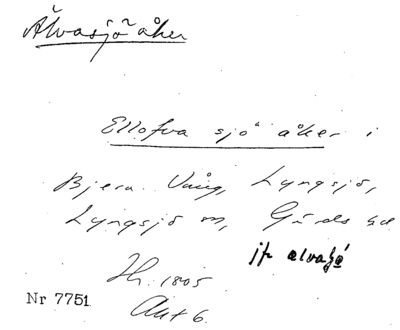 Älvasjö åker
Ellofva sjö åker i
Bjera Vång, Lyngsjö,
Lyngsjö sn, Gärds hd
jfr alvasjö
Hr. 1805
Akt 6.
Nr 7751